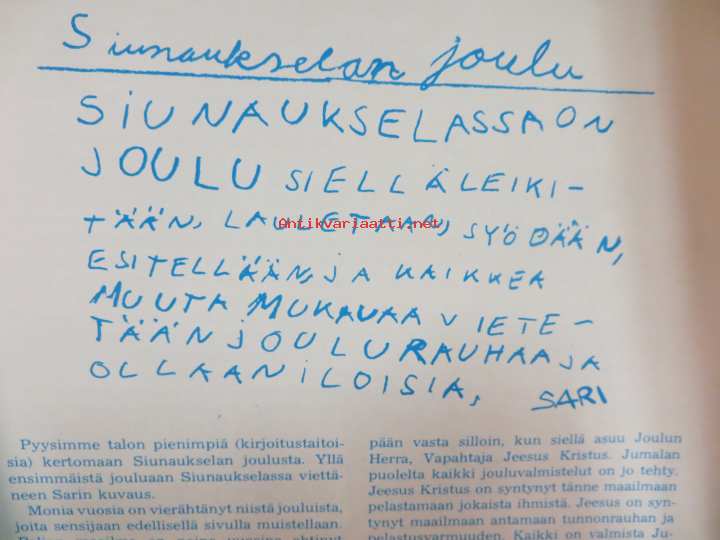 Siunaukselan joulu
SIUNAUKSELASSA ON
JOULU SIELLÄ LEIKI-
TÄÄN, LAULETAAN, SYÖDÄÄN,
Antikvariaatti.net
ESITELLÄÄN, JA KAIKKEA
MUUTA MUKAVAA VIETE-
TÄÄN JOULURAUHAA JA
OLLAAN ILOISIA,
SARI
Pyysimme talon pienimpiä (kirjoitustaitoi-
sia) kertomaan Siunaukselan joulusta. Yllä
ensimmäistä jouluaan Siunaukselassa viettä-
neen Sarin kuvaus.
Monia vuosia on vierähtänyt niistä jouluista,
joita sensijaan edellisellä sivulla muistellaan.
pään vasta silloin, kun siellä asuu Joulun
Herra, Vapahtaja Jeesus Kristus. Jumalan
puolelta kaikki jouluvalmistelut on jo tehty.
Jeesus Kristus on syntynyt tänne maailmaan
pelastamaan jokaista ihmistä. Jeesus on syn-
tynyt maailmaan antamaan tunnonrauhan ja
pelastusvarmuuden. Kaikki on valmista Ju-